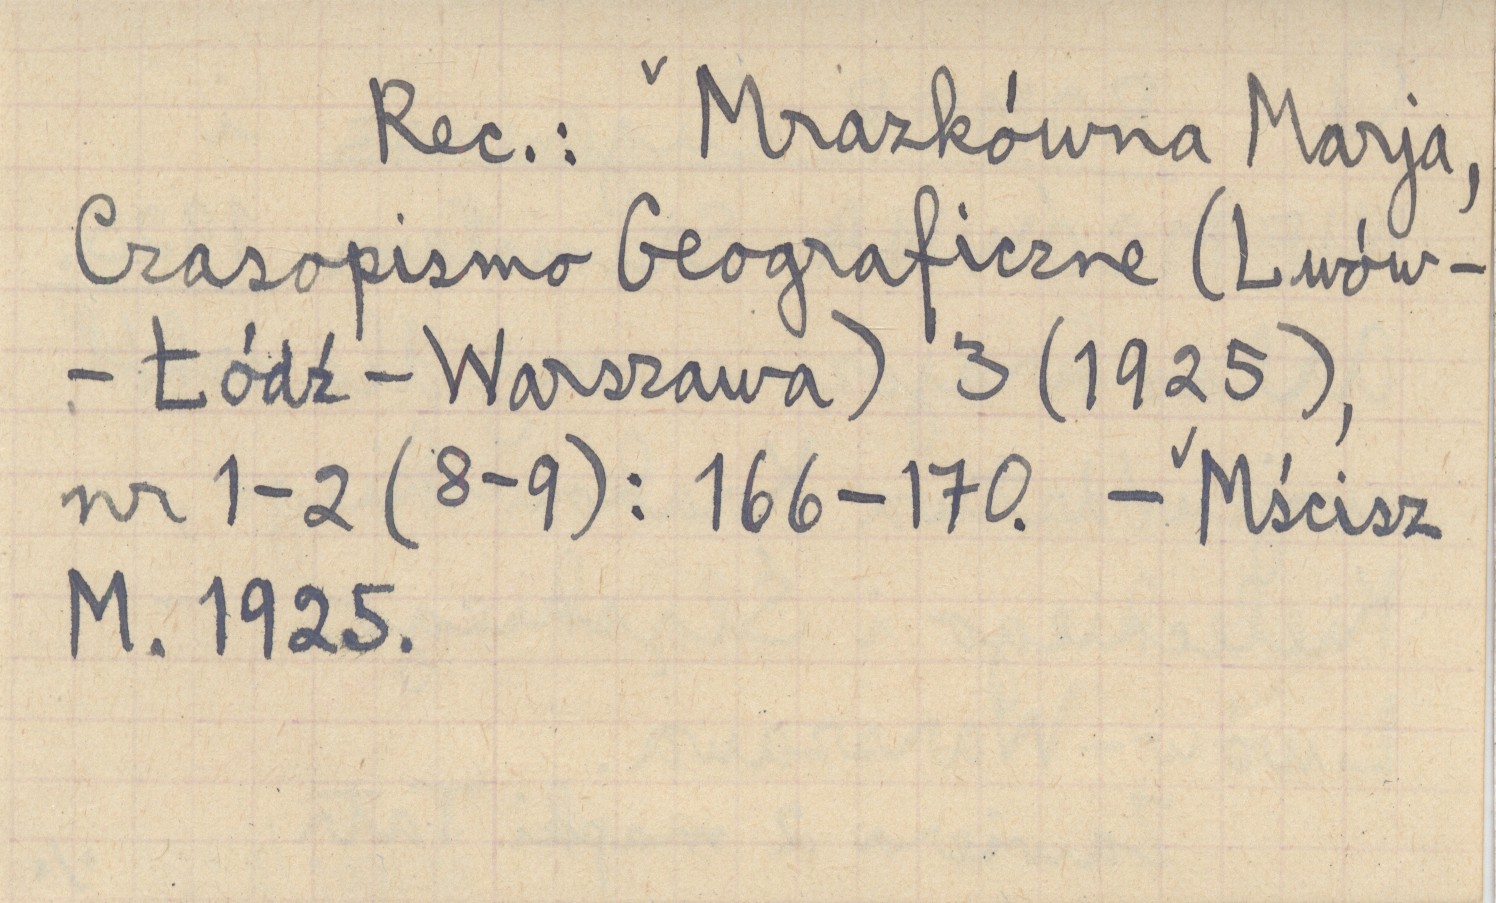 Rec.: ˇMrazkówna Marja,
Czasopismo Geograficzne (Lwów-
- Łódź - Warszawa) 3 (1925),
nr 1-2 (8-9): 166-170. - ˇMścisz
M. 1925.